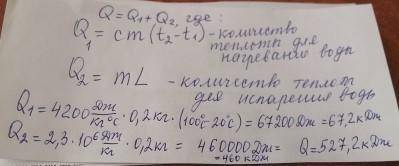 Q = Q₁ + Q₂, где :
Q₁ = cm(t₂-t₁) - количество
теплоты для
нагревания воды
Q₂ = mL - количество теплот
для испарения воды
Q₁ = 4200 Дж/кг°С · 0,2кг · (100°С-20°С) = 67200Дж = 67,2кДж
Q₂ = 2,3 · 10⁶ Дж/кг · 0,2кг = 460000Дж = Q = 527,2кДж
= 460 кДж